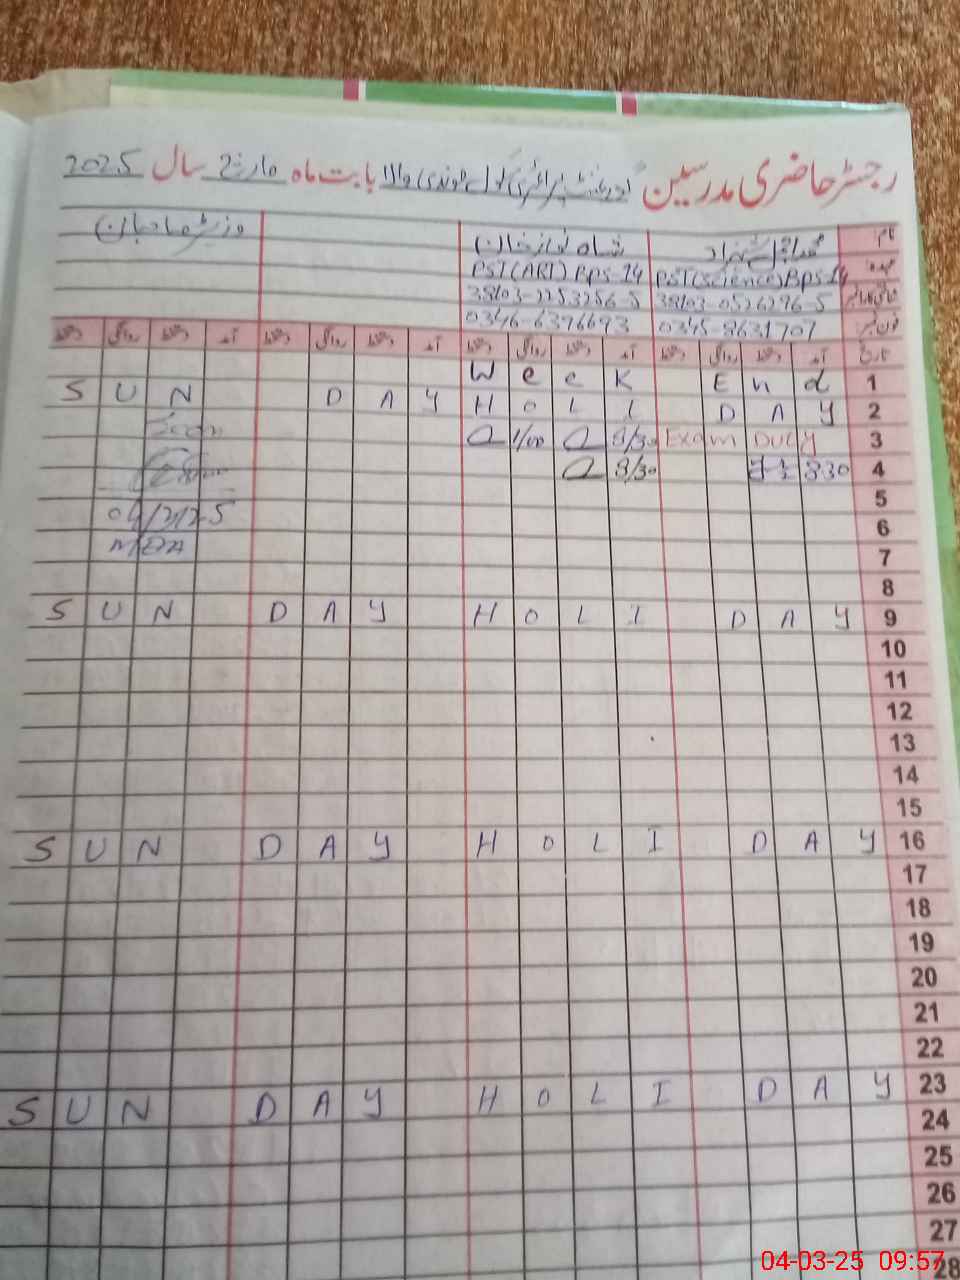 رجسٹر حاضری مدرسین گورنمنٹ پرائمری سکول والا بابت ماہ مارچ سال 2025
نام شاہ نواز خان وزٹ صاحبان
عہدہ PST(Science) Bps-14 PST(ART) Bps-14
38403-0526296-5 38403-2253256-5
فون نمبر 0345-8631707 0346-6396693
تاریخ آمد دستخط روانگی دستخط آمد دستخط روانگی دستخط آمد دستخط روانگی دستخط آمد دستخط روانگی دستخط
Week End 1
SUN DAY HOLI DAY 2
1/00 8/30 Exam Duty 3
8/30 830 4
5
6
7
8
SUN DAY HOLI DAY 9
10
11
12
13
14
15
SUN DAY HOLI DAY 16
17
18
19
20
21
22
SUN DAY HOLI DAY 23
24
25
26
27
28
04-03-25 09:57